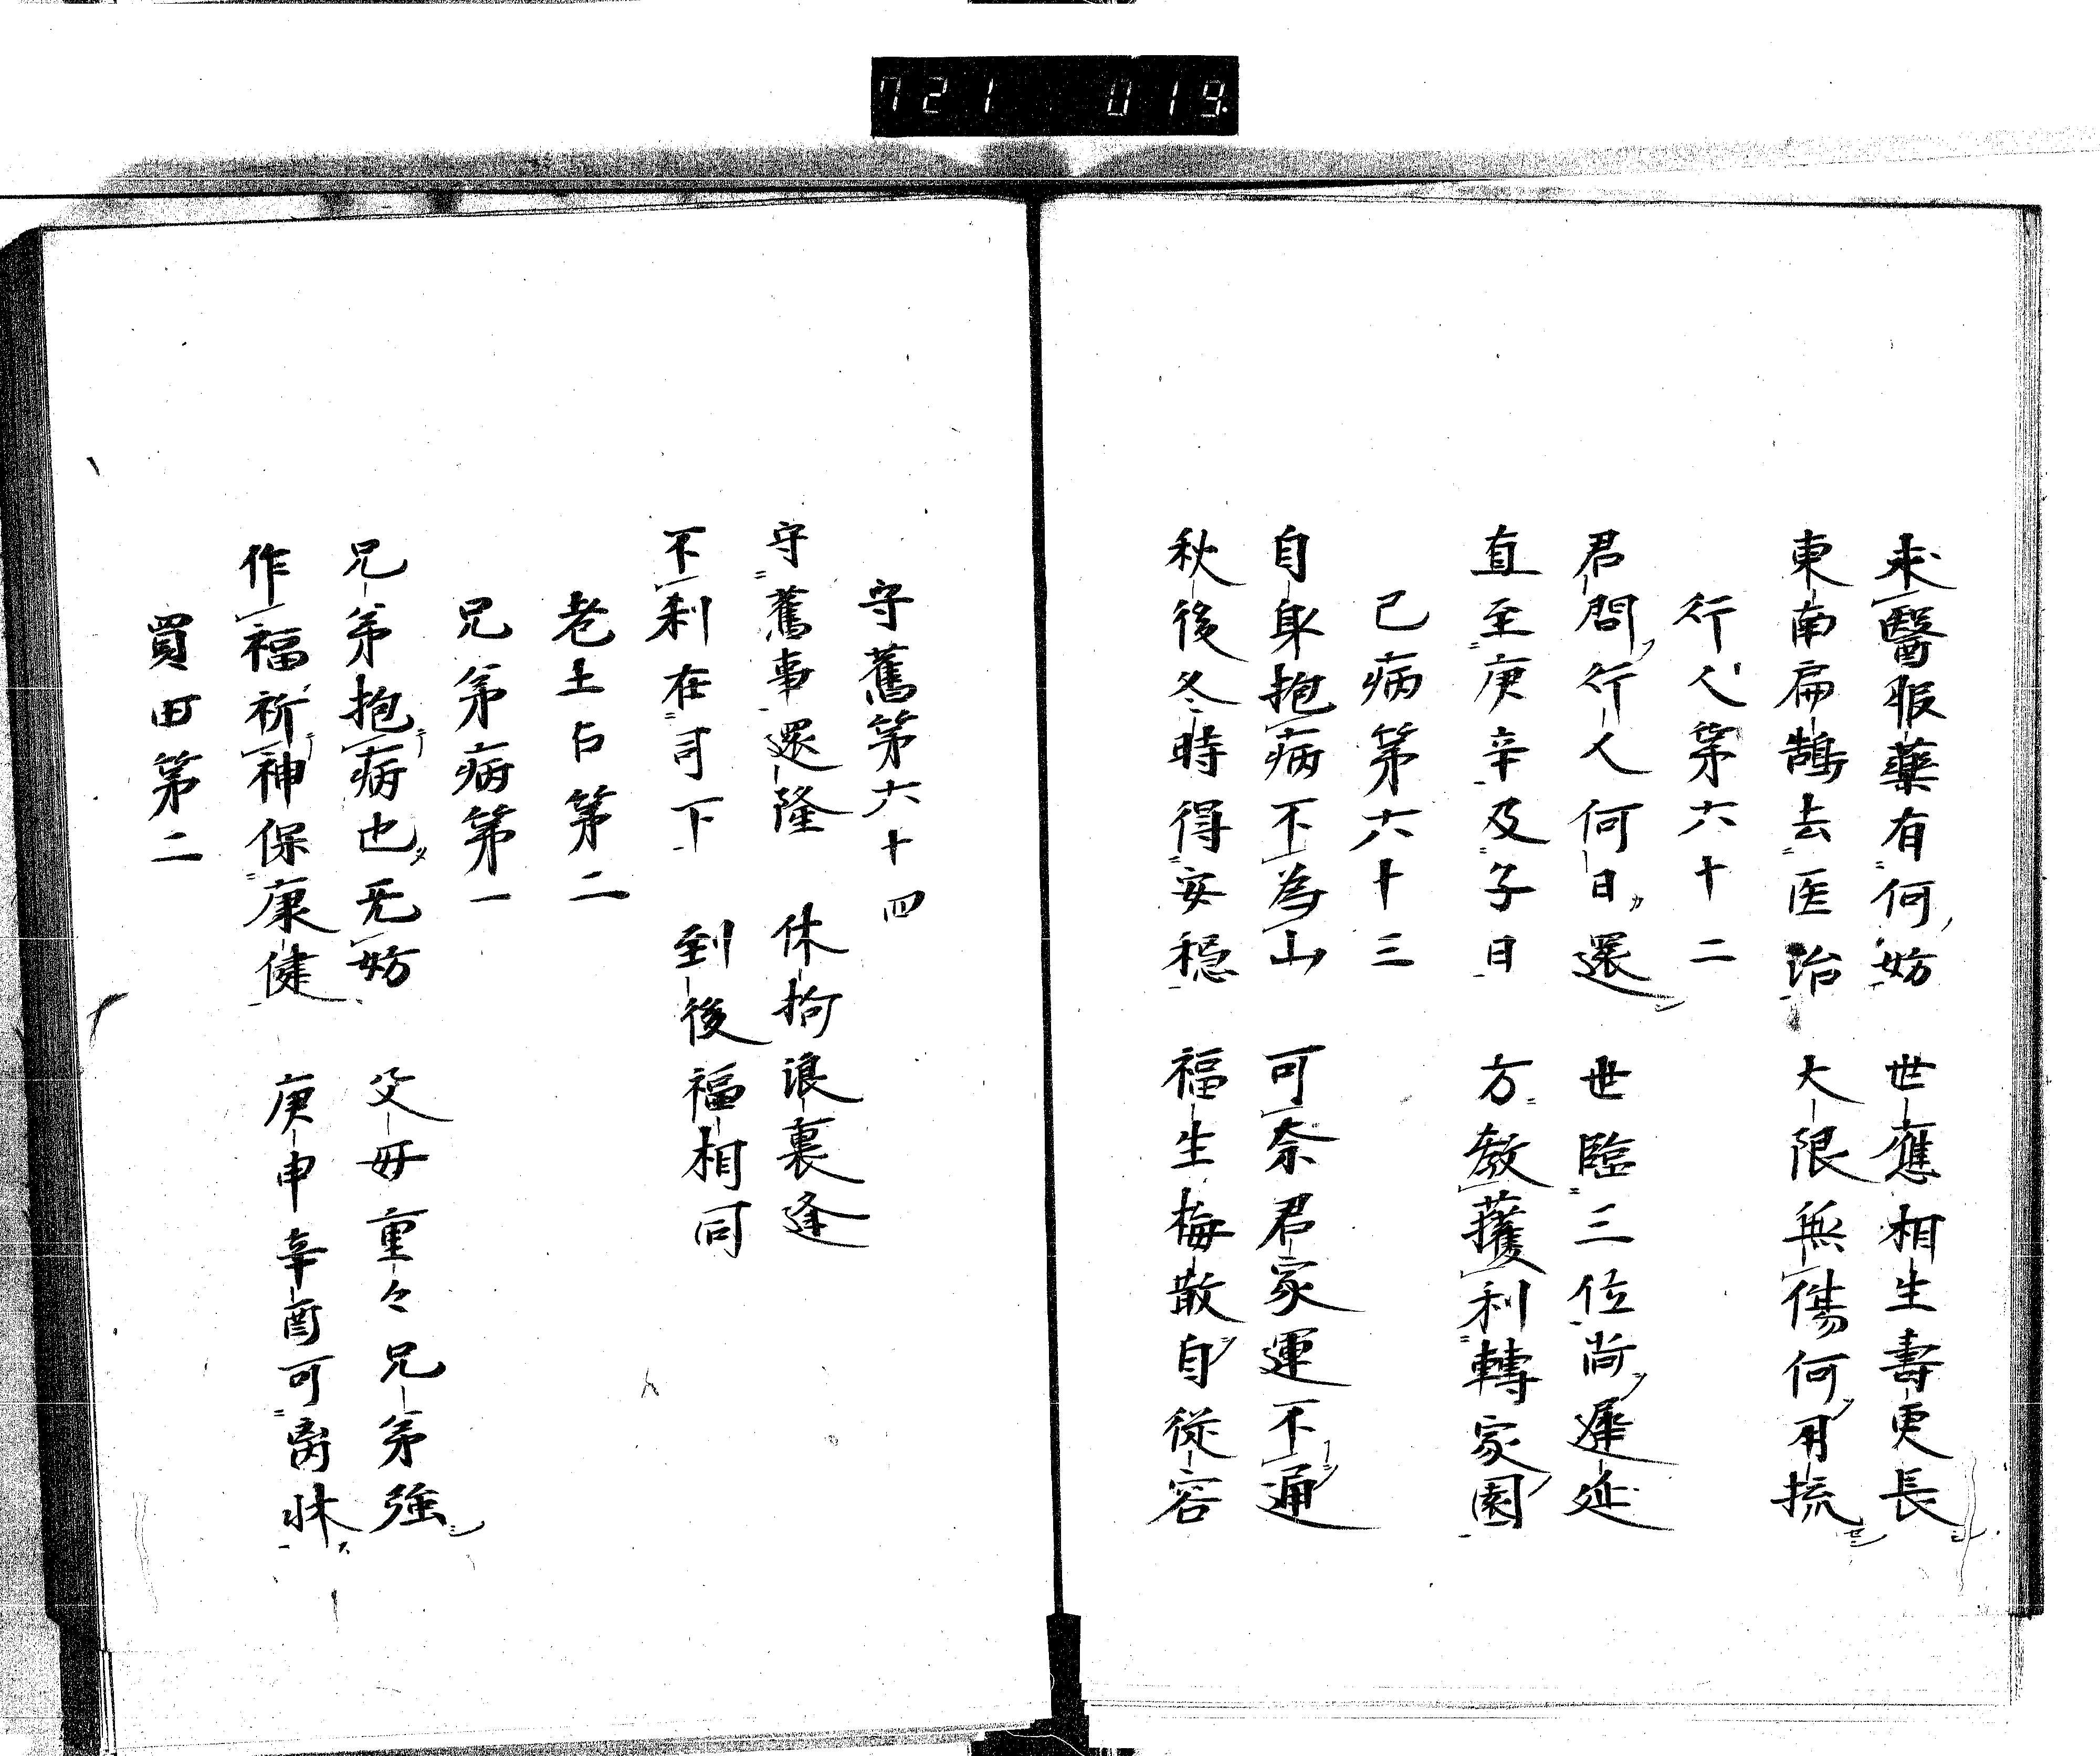 721 019
求醫服藥有何妨 世應相生壽更長
東南扁鵲去医治 大限無傷何用
行人第六十二
君問行人何日還 世臨三位尚遲延
直至庚辛及子日 方教獲利轉家園
己病第六十三
自身抱病不為 可奈君家運不通
秋後冬時得安穩 福生悔散自從容
守舊第六十四
守舊事還隆 休拘浪裏逢
不利在司下 到後福相同
老土占第二
兄弟病第一
兄弟抱病也无妨 父母重々兄弟強
作福祈神保康健 庚申辛酉可离牀
買田第二